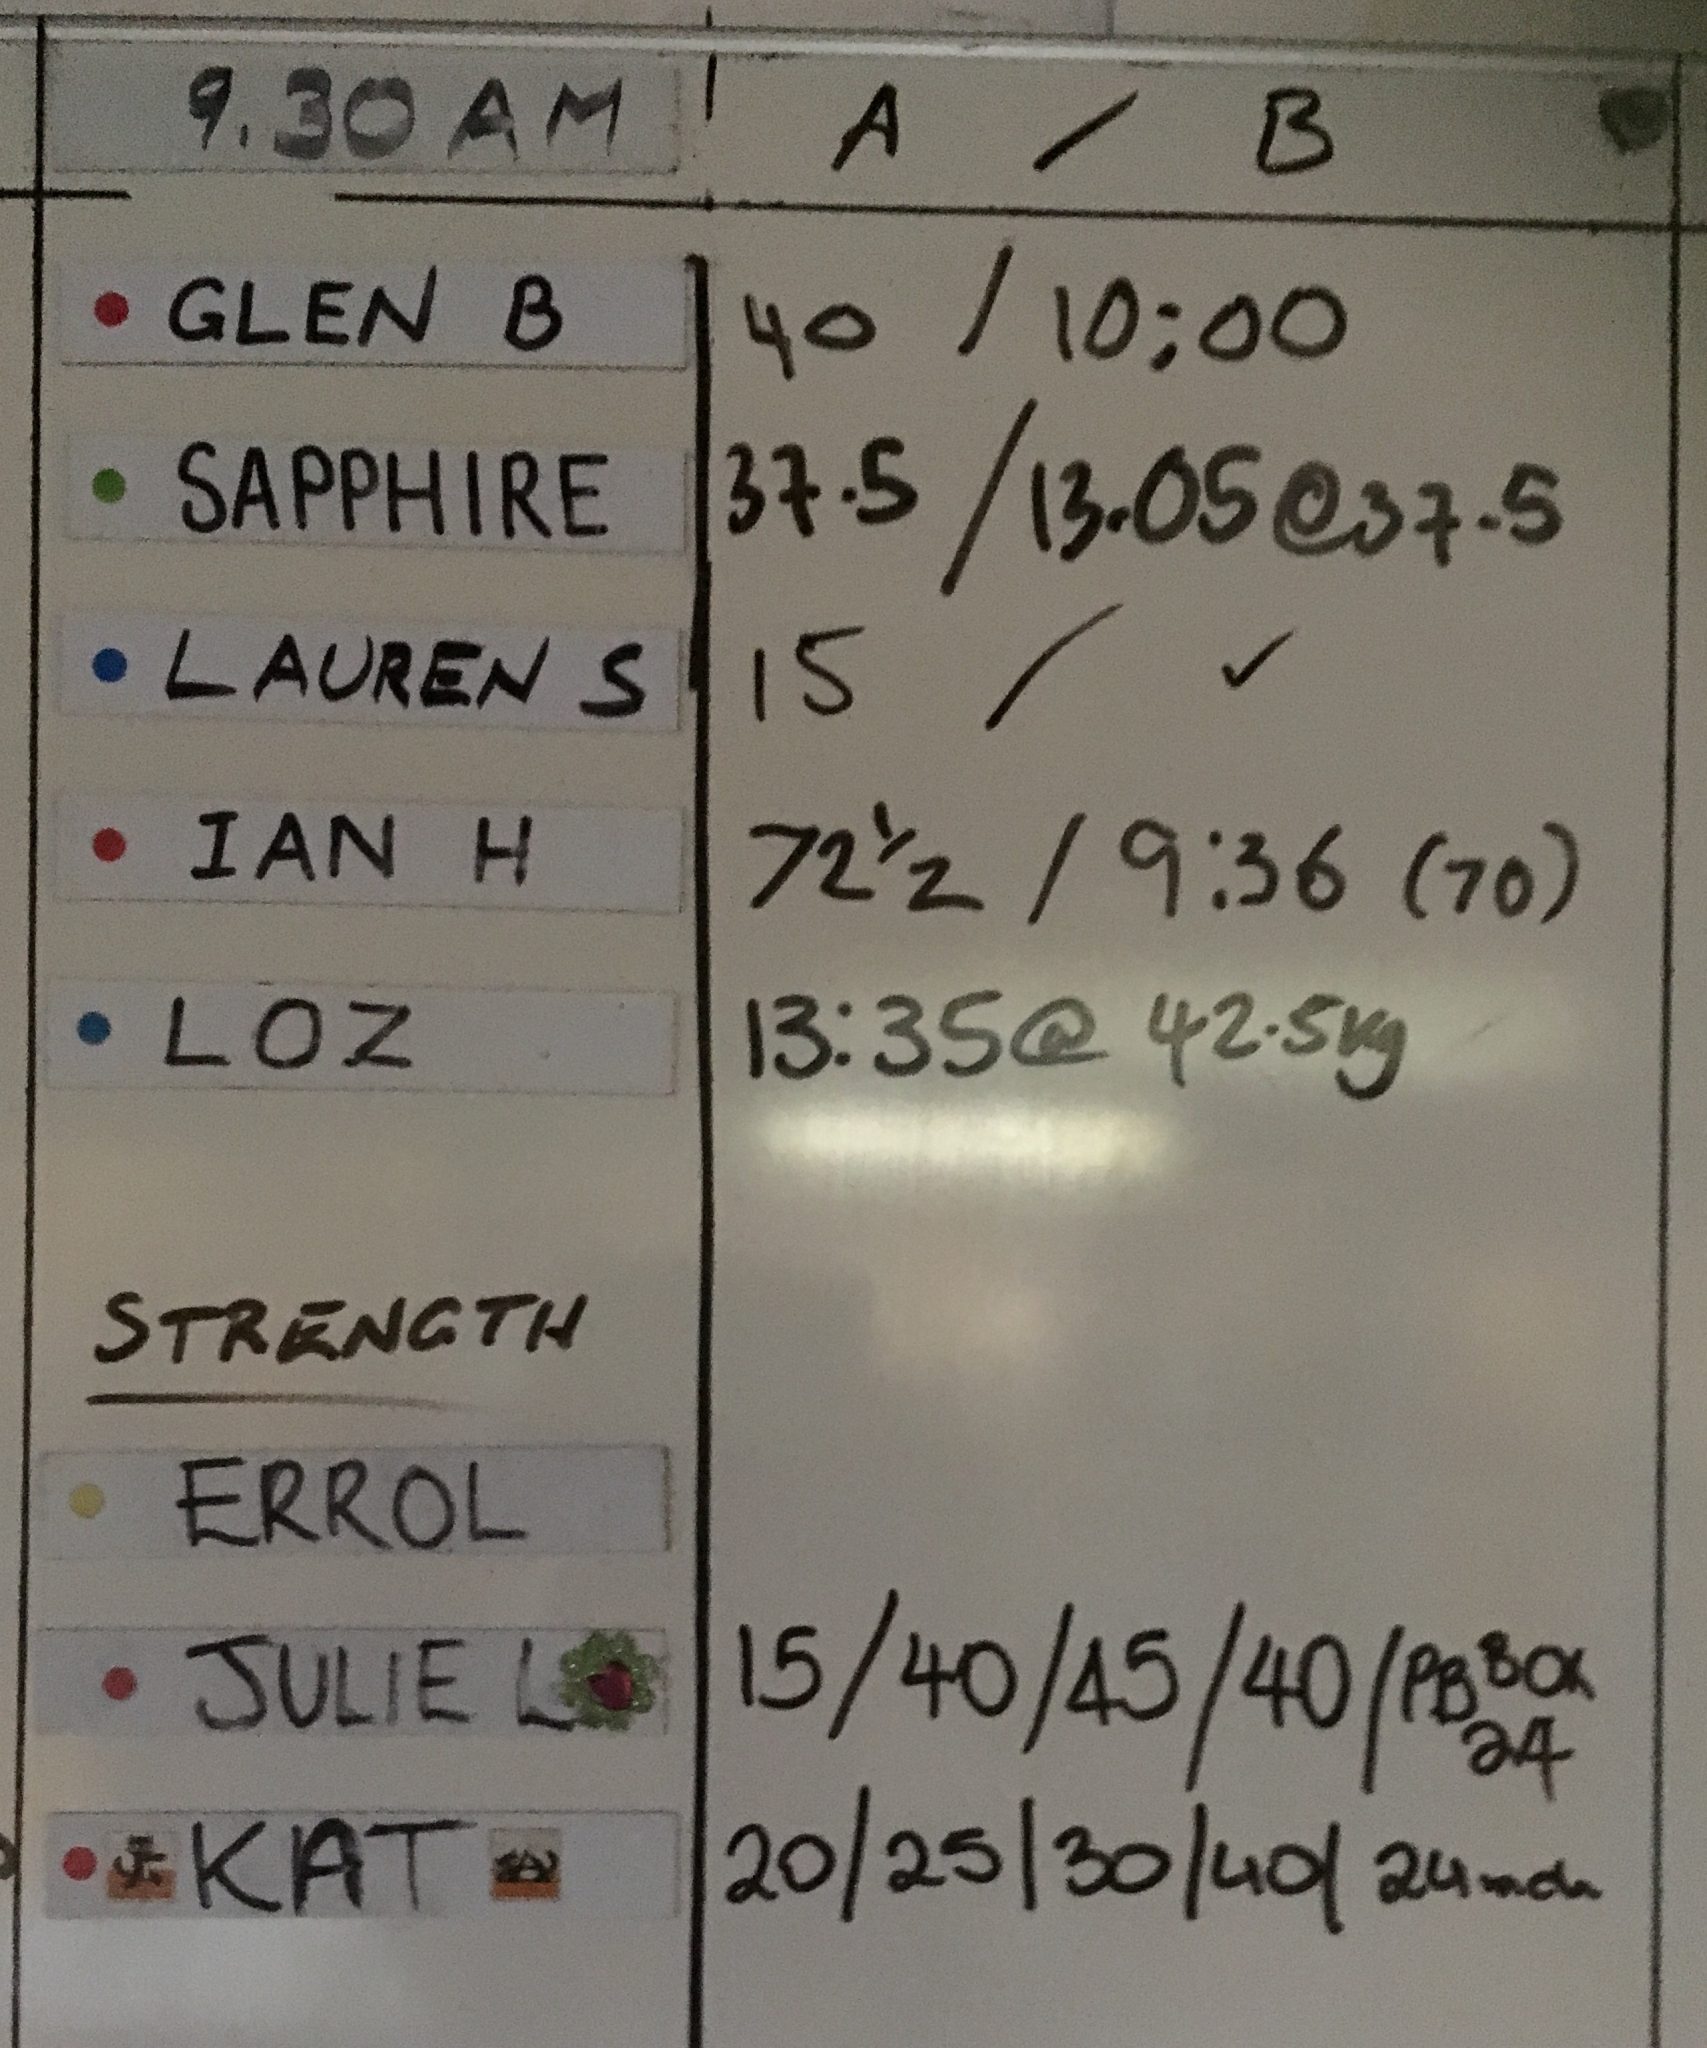 9.30 AM A / B
GLEN B 40 / 10:00
SAPPHIRE 37.5 / 13.05@37.5
LAUREN S 15 / ✓
IAN H 72 1/2 / 9:36 (70)
LOZ 13:35@ 42.5kg
STRENGTH
ERROL
JULIE L 15/40/45/40/PB BOX
24
KAT 20/25/30/40/ 24